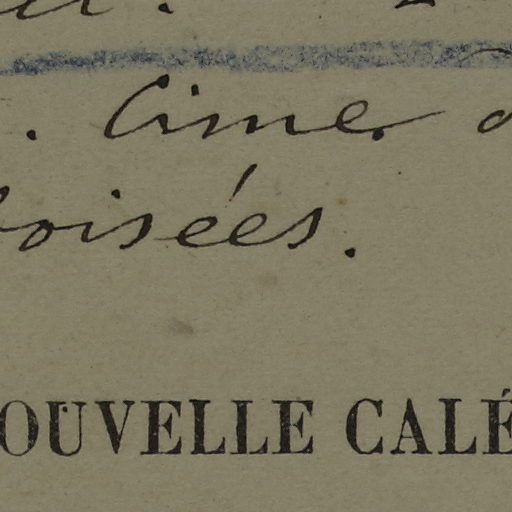 . Cime
boisées.
OUVELLE CALÉ